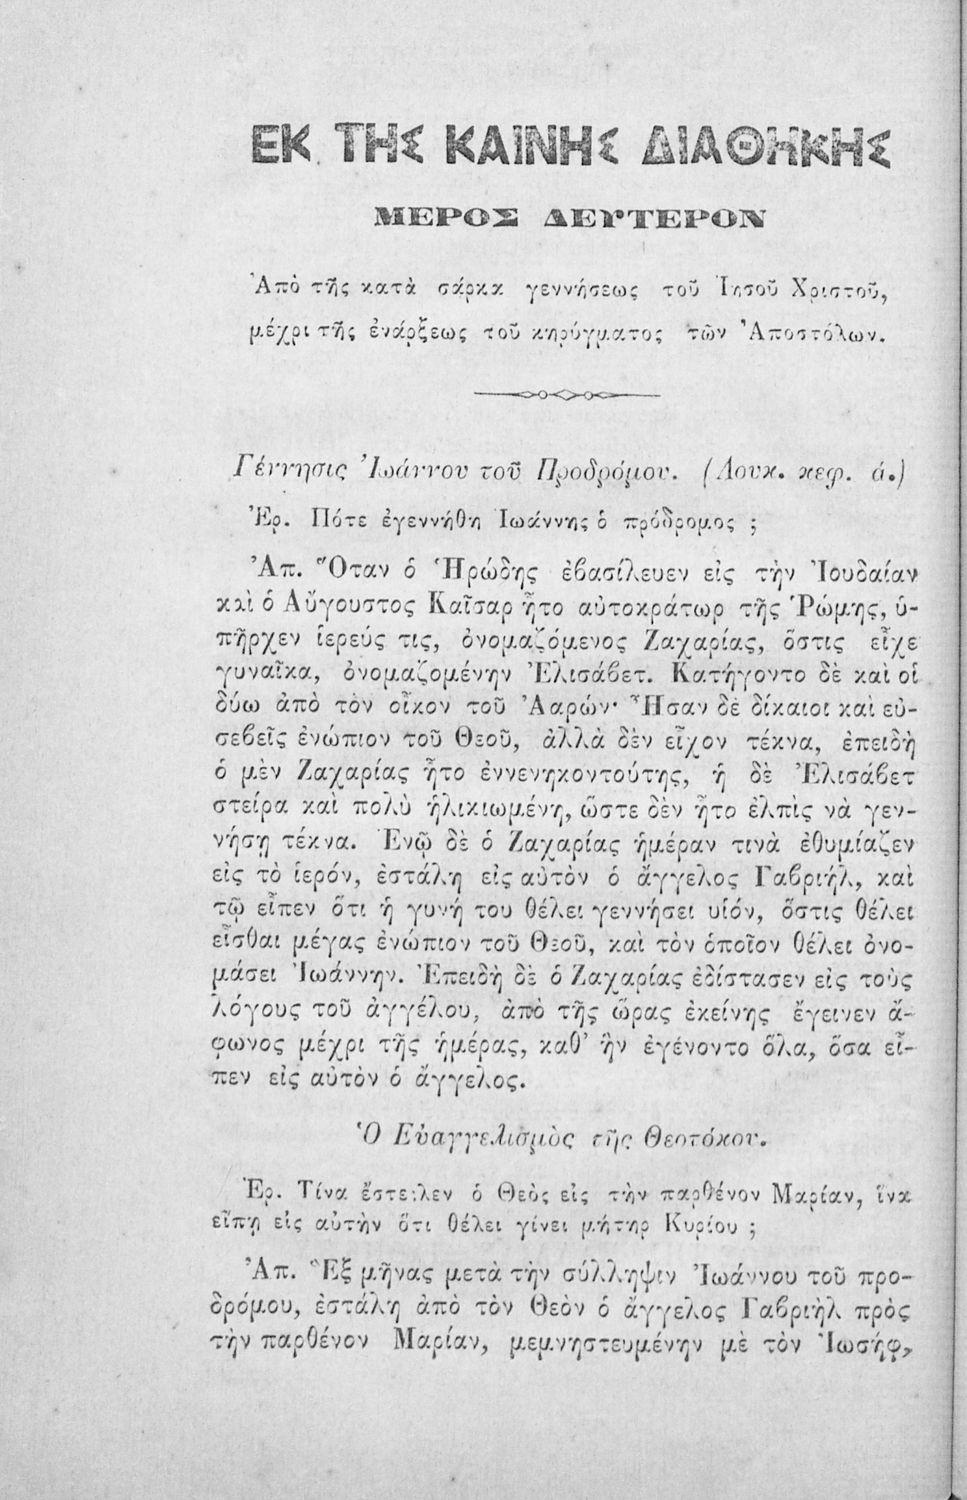 ΕΚ ΤΗΣ ΚΑΙΝΗΣ ΔΙΑΘΗΚΗΣ
ΜΕΡΟΣ ΔΕΥΤΕΡΟΝ
Ἀπὸ τῆς κατὰ σάρκα γεννήσεως τοῦ Ἰησοῦ Χριστοῦ,
μέχρι τῆς ἐνάρξεως τοῦ κηρύγματος τῶν Ἀποστόλων.
Γέννησις Ἰωάννου τοῦ Προδρόμου. (Λουκ. κεφ. ά.)
Ἐρ. Πότε ἐγεννήθη Ἰωάννης ὁ πρόδρομος ;
Ἀπ. Ὅταν ὁ Ἡρώδης ἐβασίλευεν εἰς τὴν Ἰουδαίαν
καὶ ὁ Αὔγουστος Καῖσαρ ἦτο αὐτοκράτωρ τῆς Ῥώμης, ὑ-
πῆρχεν ἱερεύς τις, ὀνομαζόμενος Ζαχαρίας, ὅστις εἶχε
γυναῖκα, ὀνομαζομένην Ἐλισάβετ. Κατήγοντο δὲ καὶ οἱ
δύω ἀπὸ τὸν οἶκον τοῦ Ἀαρών· Ἦσαν δὲ δίκαιοι καὶ εὐ-
σεβεῖς ἐνώπιον τοῦ Θεοῦ, ἀλλὰ δὲν εἶχον τέκνα, ἐπειδὴ
ὁ μὲν Ζαχαρίας ἦτο ἐννενηκοντούτης, ἡ δὲ Ἐλισάβετ
στείρα καὶ πολὺ ἡλικιωμένη, ὥστε δὲν ἦτο ἐλπὶς νὰ γεν-
νήσῃ τέκνα. Ἐνῷ δὲ ὁ Ζαχαρίας ἡμέραν τινὰ ἐθυμίαζεν
εἰς τὸ ἱερόν, ἐστάλη εἰς αὐτὸν ὁ ἄγγελος Γαβριήλ, καὶ
τῷ εἶπεν ὅτι ἡ γυνή του θέλει γεννήσει υἱόν, ὅστις θέλει
εἶσθαι μέγας ἐνώπιον τοῦ Θεοῦ, καὶ τὸν ὁποῖον θέλει ὀνο-
μάσει Ἰωάννην. Ἐπειδὴ δὲ ὁ Ζαχαρίας ἐδίστασεν εἰς τοὺς
λόγους τοῦ ἀγγέλου, ἀπὸ τῆς ὥρας ἐκείνης ἔγεινεν ἄ-
φωνος μέχρι τῆς ἡμέρας, καθ' ἣν ἐγένοντο ὅλα, ὅσα εἶ-
πεν εἰς αὐτὸν ὁ ἄγγελος.
Ὁ Εὐαγγελισμὸς τῆς Θεοτόκου.
Ἐρ. Τίνα ἔστειλεν ὁ Θεὸς εἰς τὴν παρθένον Μαρίαν, ἵνα
εἴπῃ εἰς αὐτὴν ὅτι θέλει γίνει μήτηρ Κυρίου ;
Ἀπ. Ἓξ μῆνας μετὰ τὴν σύλληψιν Ἰωάννου τοῦ προ-
δρόμου, ἐστάλη ἀπὸ τὸν Θεὸν ὁ ἄγγελος Γαβριὴλ πρὸς
τὴν παρθένον Μαρίαν, μεμνηστευμένην μὲ τὸν Ἰωσήφ,